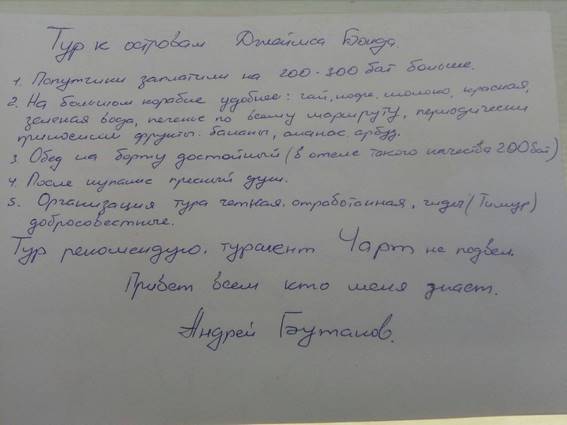 Тур к островам Джеймса Бонда.
1. Попутчики заплатили на 200-300 бат больше.
2. На большом корабле удобнее: чай, кофе, молоко, красная,
зеленая вода, печение по всему маршруту, периодически
приносили фрукты: бананы, ананас арбуз.
3 Обед на борту достойный (в отеле такого качества 200 бат)
4. После купание пресный душ.
5. Организация тура четкая. отработанная, гиды (Тимур)
добросовестные.
Тур рекомендую, турагент Чарт не подвел.
Привет всем кто меня знает.
Андрей